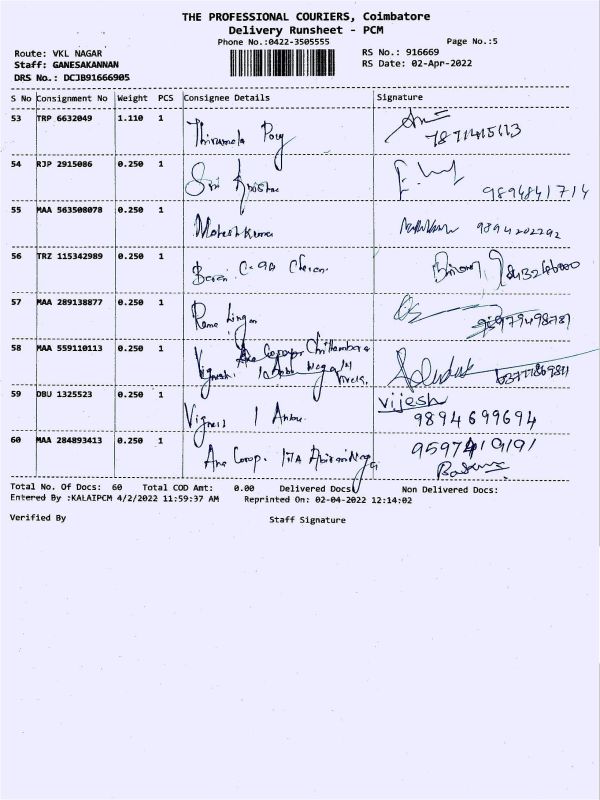 THE PROFESSIONAL COURIERS, Coimbatore
Delivery Runsheet - PCM
Phone No.:0422-3505555 Page No.:5
Route: VKL NAGAR RS No.: 916669
Staff: GANESAKANNAN RS Date: 02-Apr-2022
DRS No.: DCJB91666905
S No Consignment No Weight PCS Consignee Details Signature
53 TRP 6632049 1.110 1 Thirumala
54 RJP 2915086 0.250 1 Sri 9894841714
55 MAA 563508078 0.250 1 Maheshkumar 9894202292
56 TRZ 115342989 0.250 1
57 MAA 289138877 0.250 1 Rama Lingam
58 MAA 559110113 0.250 1 Vignesh
59 DBU 1325523 0.250 1 vijesh
9894699694
60 MAA 284893413 0.250 1 Ana Corop.
Total No. Of Docs: 60 Total COD Amt: 0.00 Delivered Docs: Non Delivered Docs:
Entered By :KALAIPCM 4/2/2022 11:59:37 AM Reprinted On: 02-04-2022 12:14:02
Verified By Staff Signature